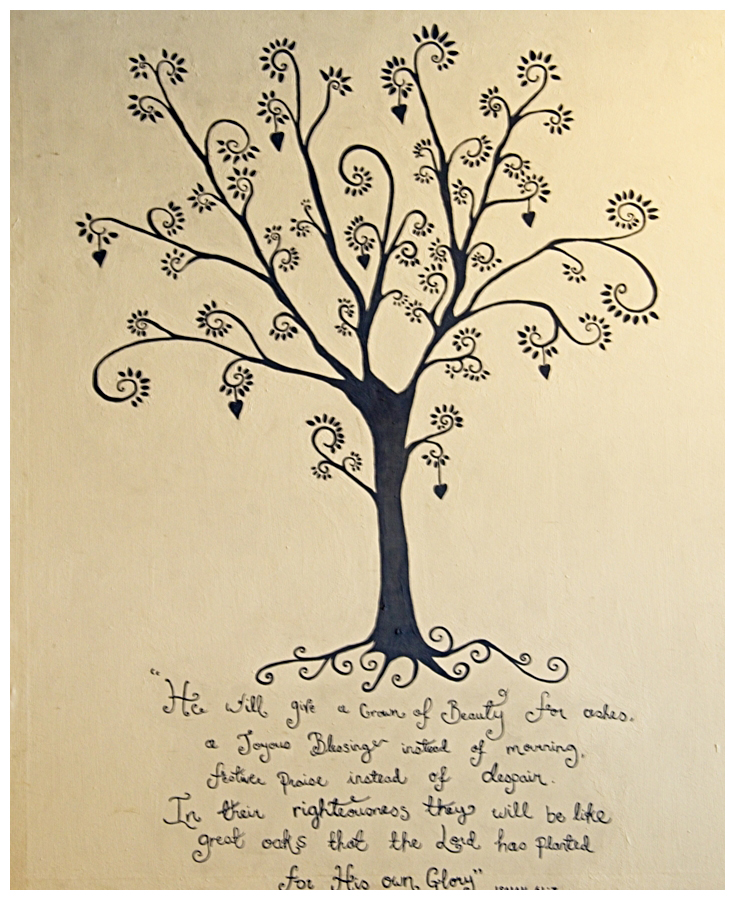 "He will give a Crown of Beauty for ashes.
a Joyous Blessing instead of mourning,
festive praise instead of despair.
In their righteousness they will be like
great oaks that the Lord has planted
for His own Glory"